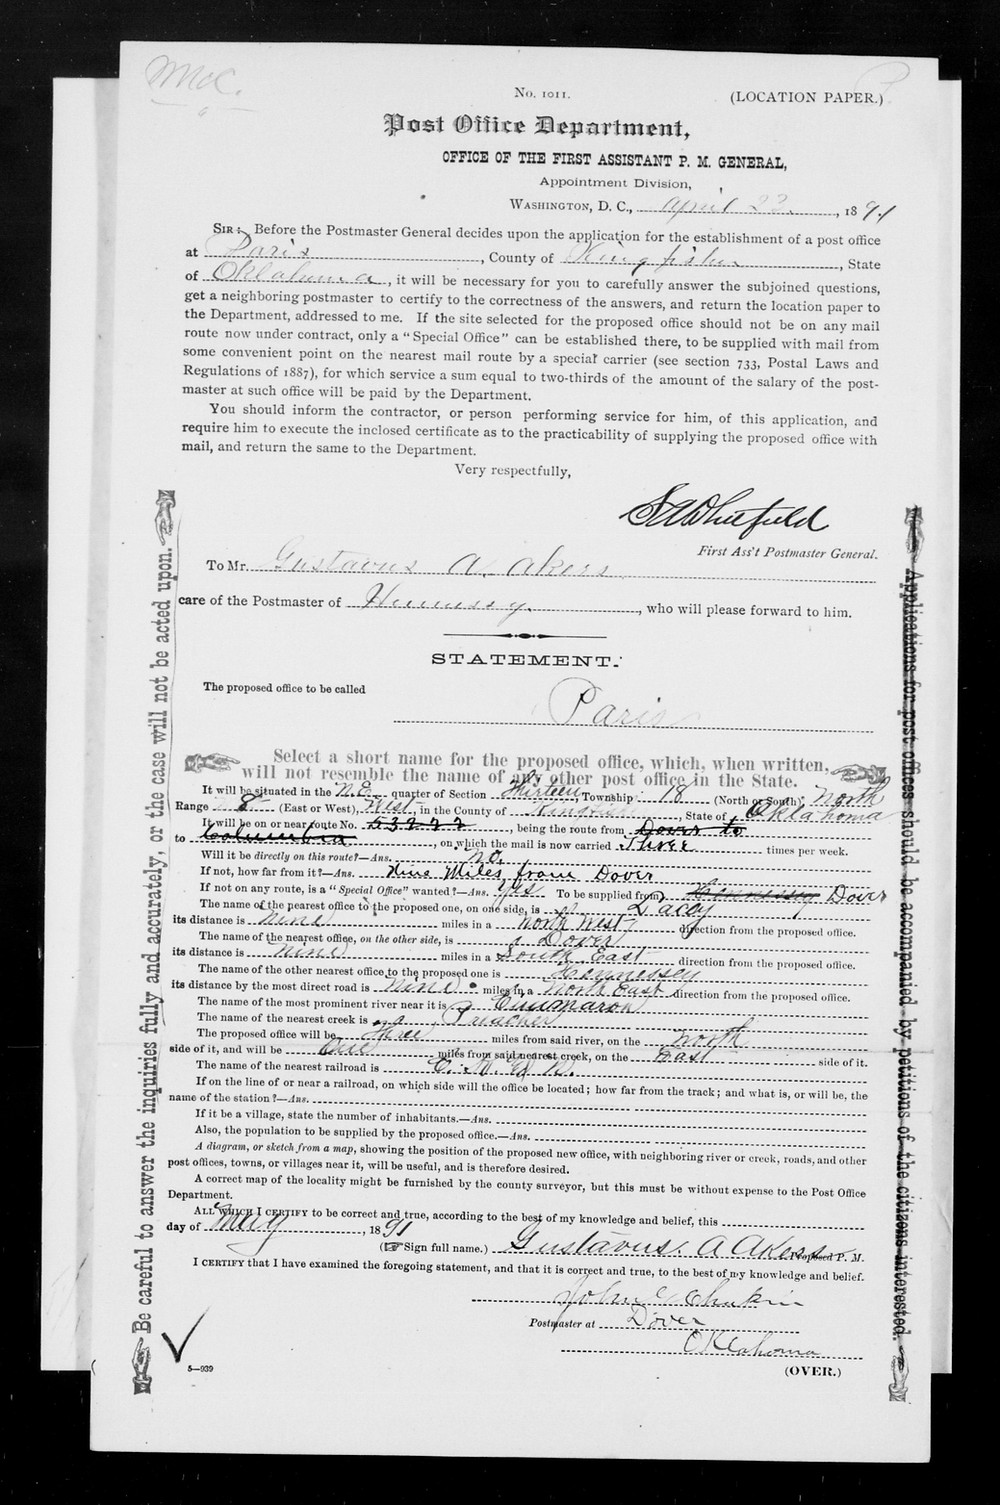 No. 1011.
(LOCATION PAPER.)
Post Office Department,
OFFICE OF THE FIRST ASSISTANT P. M. GENERAL,
Appointment Division,
WASHINGTON, D. C., April 23, 1891
SIR: Before the Postmaster General decides upon the application for the establishment of a post office
at Paris, County of Kingfisher, State
of Oklahoma, it will be necessary for you to carefully answer the subjoined questions,
get a neighboring postmaster to certify to the correctness of the answers, and return the location paper to
the Department, addressed to me. If the site selected for the proposed office should not be on any mail
route now under contract, only a "Special Office" can be established there, to be supplied with mail from
some convenient point on the nearest mail route by a special carrier (see section 733, Postal Laws and
Regulations of 1887), for which service a sum equal to two-thirds of the amount of the salary of the post-
master at such office will be paid by the Department.
You should inform the contractor, or person performing service for him, of this application, and
require him to execute the inclosed certificate as to the practicability of supplying the proposed office with
mail, and return the same to the Department.
Very respectfully,
S A Whitfield
First Ass't Postmaster General.
To Mr. Gustavus A. Akers
care of the Postmaster of Hennessy, who will please forward to him.
STATEMENT.
The proposed office to be called
Paris
Select a short name for the proposed office, which, when written,
will not resemble the name of any other post office in the State.
It will be situated in the N.E. quarter of Section Thirteen, Township 18 (North or South), North
Range 8 (East or West), West, in the County of Kingfisher, State of Oklahoma
It will be on or near route No. 53222, being the route from Dover to
to Columbia, on which the mail is now carried Three times per week.
Will it be directly on this route?—Ans. No.
If not, how far from it?—Ans. Nine Miles from Dover
If not on any route, is a "Special Office" wanted?—Ans. Yes To be supplied from Hennessey Dover
The name of the nearest office to the proposed one, on one side, is Lacey
its distance is nine miles in a North West direction from the proposed office.
The name of the nearest office, on the other side, is Dover
its distance is nine miles in a South East direction from the proposed office.
The name of the other nearest office to the proposed one is Hennessey
its distance by the most direct road is nine miles in a North East direction from the proposed office.
The name of the most prominent river near it is Cimmaron
The name of the nearest creek is Preacher
The proposed office will be three miles from said river, on the North
side of it, and will be one miles from said nearest creek, on the East side of it.
The name of the nearest railroad is
If on the line of or near a railroad, on which side will the office be located; how far from the track; and what is, or will be, the
name of the station?—Ans.
If it be a village, state the number of inhabitants.—Ans.
Also, the population to be supplied by the proposed office.—Ans.
A diagram, or sketch from a map, showing the position of the proposed new office, with neighboring river or creek, roads, and other
post offices, towns, or villages near it, will be useful, and is therefore desired.
A correct map of the locality might be furnished by the county surveyor, but this must be without expense to the Post Office
Department.
ALL WHICH I CERTIFY to be correct and true, according to the best of my knowledge and belief, this
day of May, 1891
(Sign full name.) Gustavus. A Akers Proposed P. M.
I CERTIFY that I have examined the foregoing statement, and that it is correct and true, to the best of my knowledge and belief.
John
Postmaster at Dover
Oklahoma
5—939
(OVER.)
Be careful to answer the inquiries fully and accurately, or the case will not be acted upon.
Applications for post offices should be accompanied by petitions of the citizens interested.